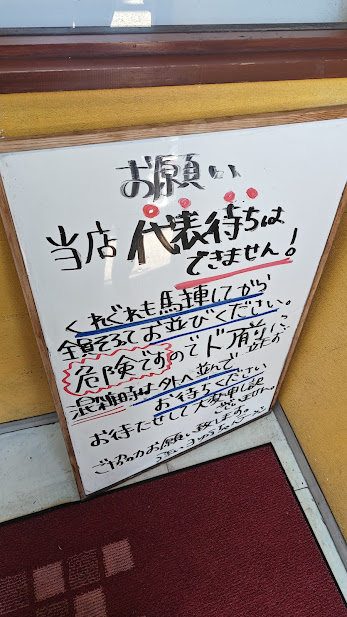 お願い
当店 代表待ちは
できません!
くれぐれも駐車してから
全員そろってお並びください。
危険ですのでドア前に立たず
混雑時は外へ並んで
お待ちください
お待たせして大変申し訳
ございません。
ご協力お願い致します。